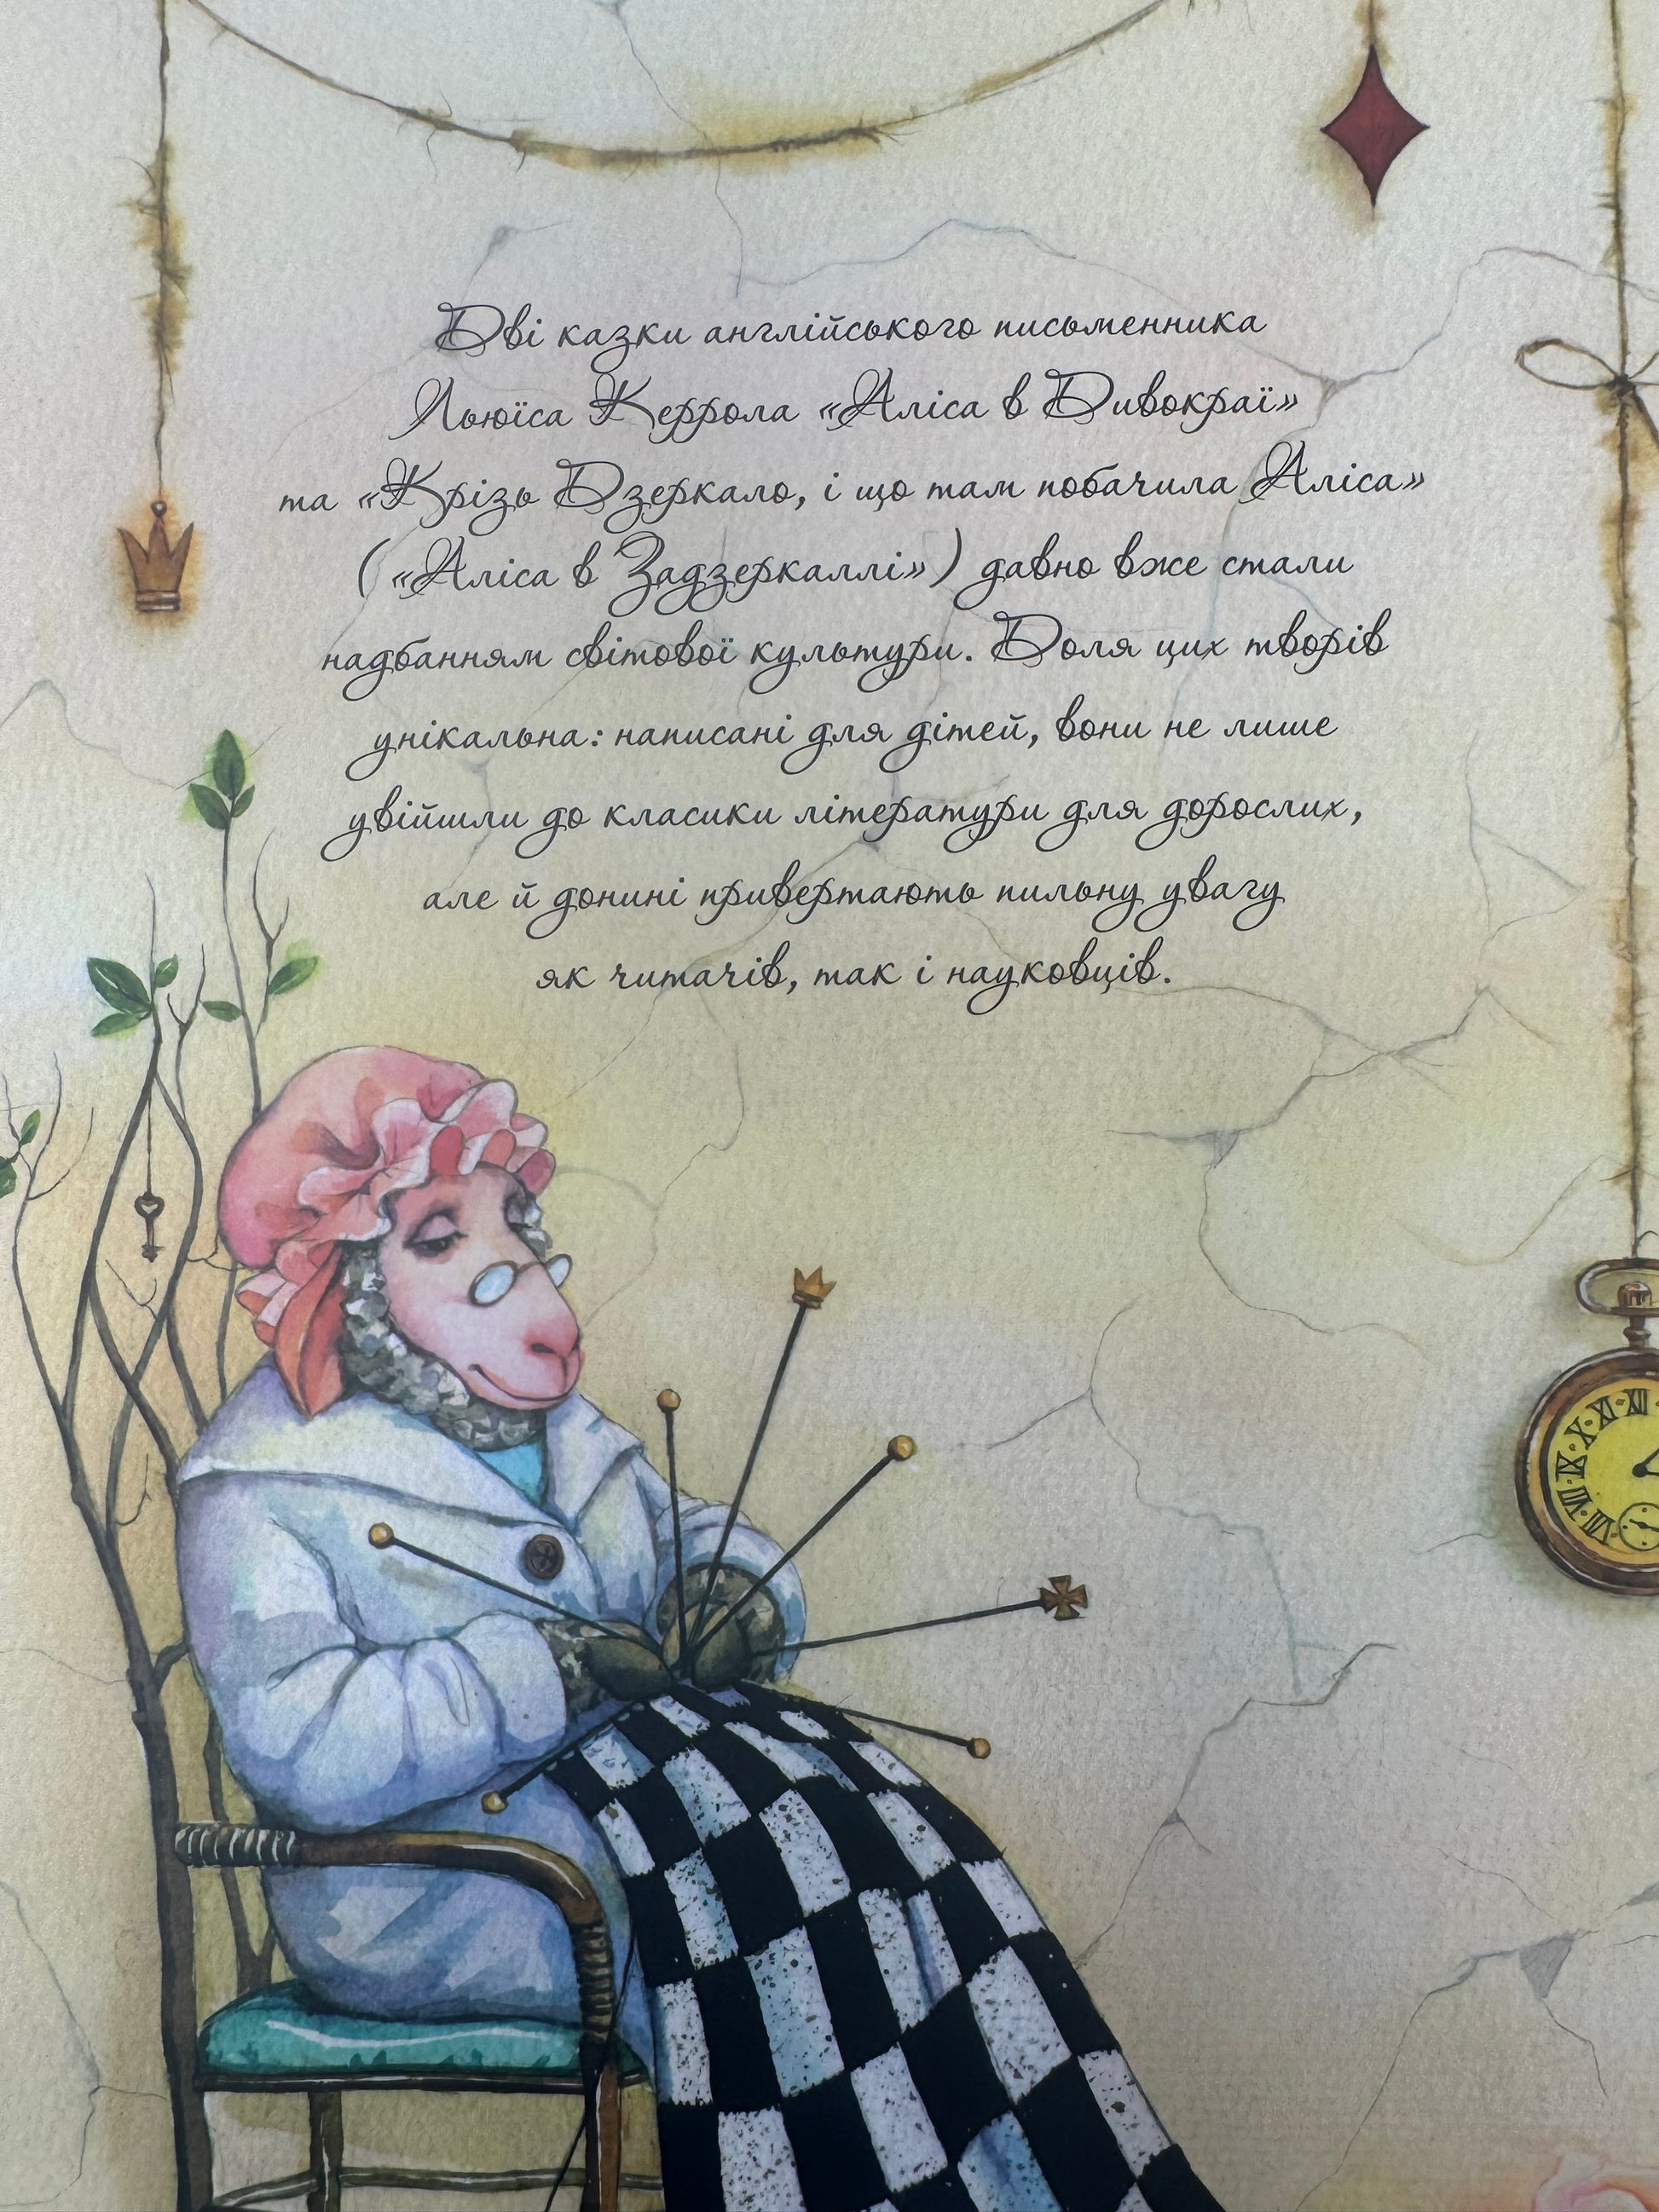 Дві казки англійського письменника
Льюїса Керрола «Аліса в Дивокраї»
та «Крізь Дзеркало, і що там побачила Аліса»
(«Аліса в Задзеркаллі») давно вже стали
надбанням світової культури. Доля цих творів
унікальна: написані для дітей, вони не лише
увійшли до класики літератури для дорослих,
але й донині привертають пильну увагу
як читачів, так і науковців.